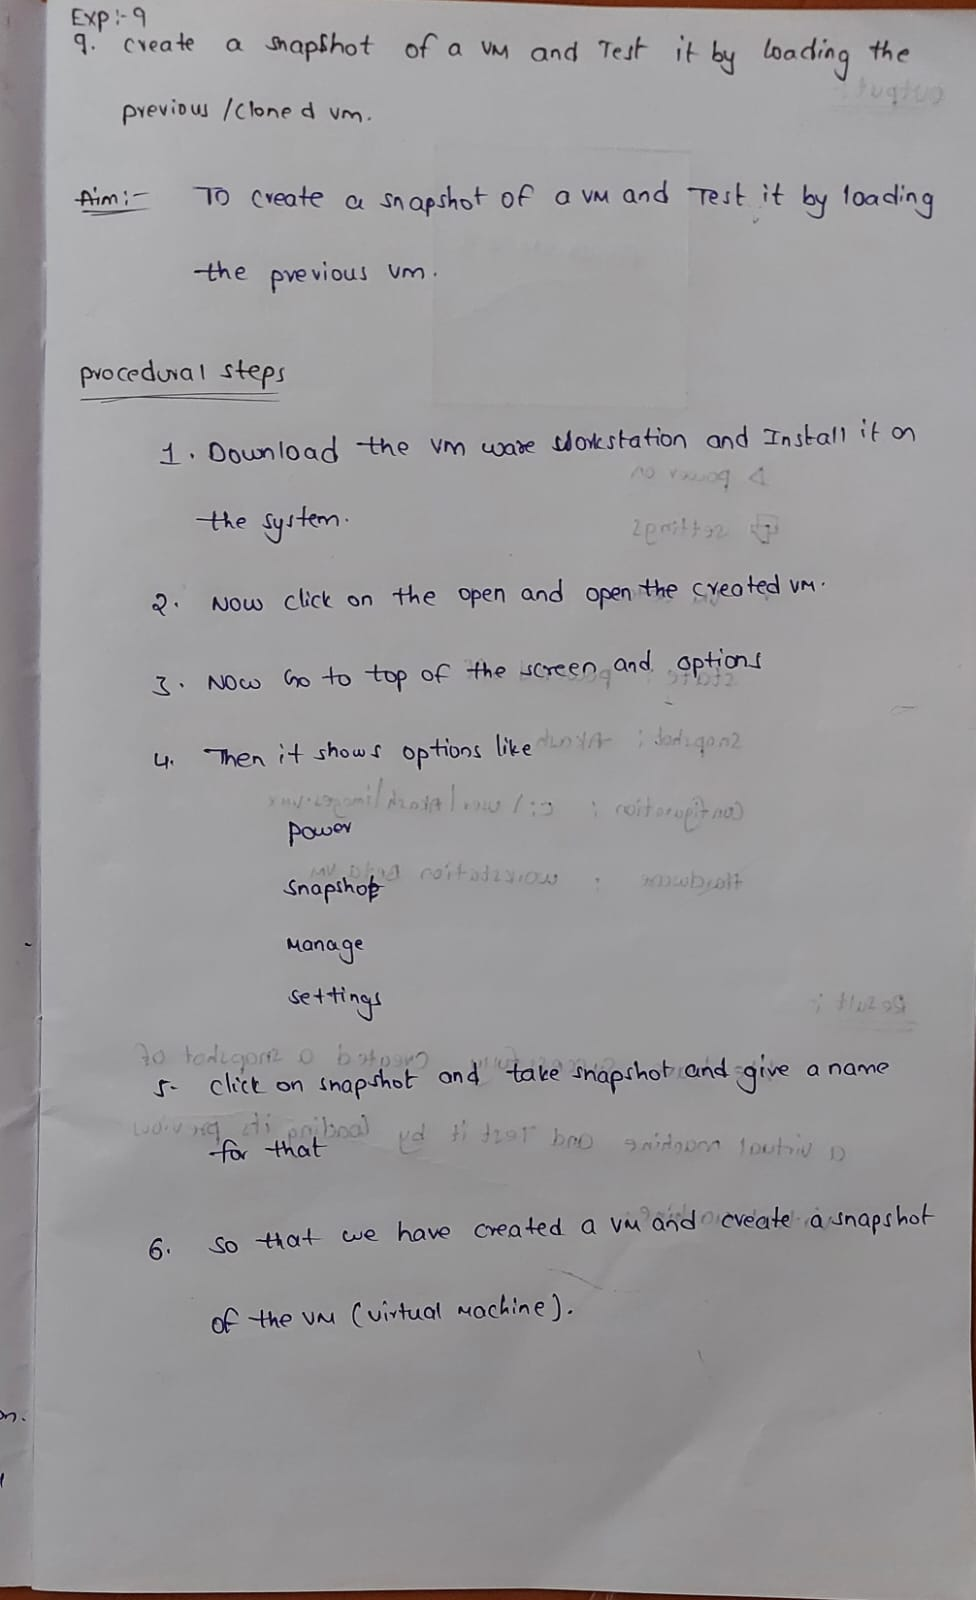 Exp:-9
9. create a snapshot of a VM and Test it by loading the
previous /cloned vm.
Aim:- To create a snapshot of a VM and Test it by loading
the previous vm.
procedural steps
1. Download the vm ware workstation and Install it on
the system.
2. Now click on the open and open the created VM.
3. Now Go to top of the screen and options
4. Then it shows options like
power
snapshot
Manage
settings
5- click on snapshot and take snapshot and give a name
for that
6. so that we have created a VM and create a snapshot
of the VM (virtual Machine).